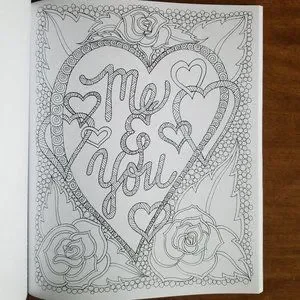 Me
&
You